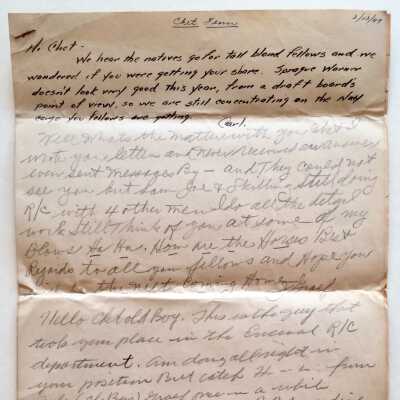 Chet
2/13/44
Hi Chet -
We hear the natives go for tall blond fellows and we
wondered if you were getting your share. Sprague Warner
doesn't look very good this year, from a draft board's
point of view, so we are still concentrating on the Navy
cargo you fellows are getting. Carl.
Well Whats the Matter with you Chet I
wrote you letters and Never Received an Answer
even sent Messages By — and They Could Not
see you But Sam Joe & still doing
R/C with 4 other Men I do all the
work Still Think of you at some of my
Blows Ha Ha. How Are the Best
Regards to all you fellows and Hope you
coming Home
Hello Chet old Boy. This is the guy that
took your place in the R/C
department. Am doing alright in
your position But catch H - L - from